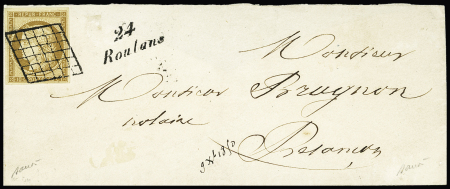 REPUB. FRANC.
24
Roulans
Monsieur
Monsieur Brugnon
notaire
Besançon